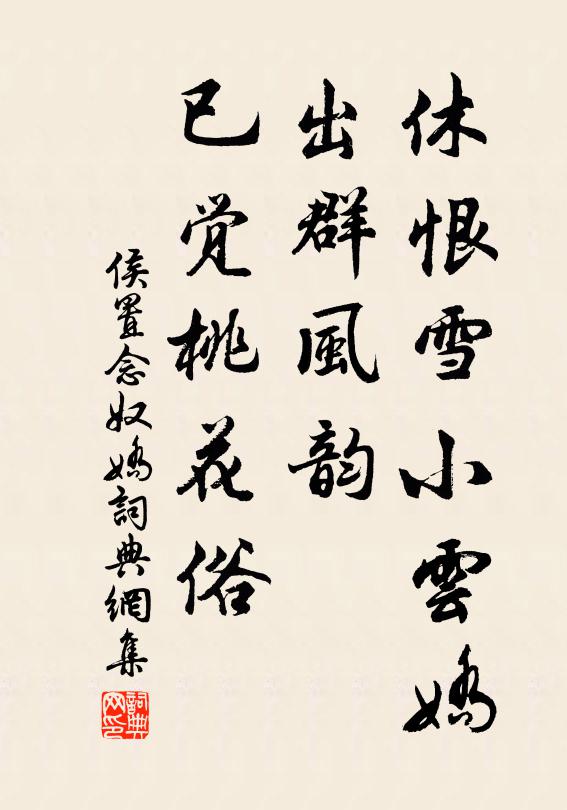 休恨雪小雲嬌
出群風韵
已覚桃花俗
侯置念奴嬌詞典網集
詞典网印